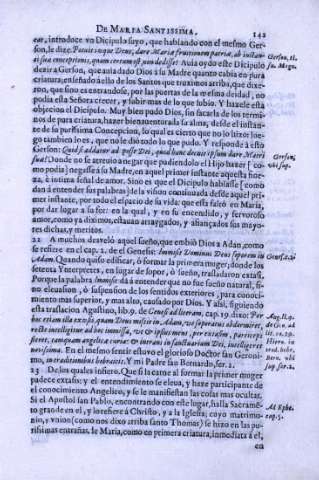 DE MARIA SANTISSIMA. 142
ear, introduce vn Dicipulo suyo, que hablando con el mesmo Ger-
son, le dize. Potuit itaque Deus, dare Mariæ fruitionem patriæ, ab instan-
ti suæ conceptionis, quam certum est, non dedisse: Auia oydo este Dicipulo
dezir a Gerson, que auia dado Dios à su Madre quanto cabia en pura
criatura; enseñado à ello de los Santos que traximos arriba, que dixe-
ron, que sino es entrandose, por las puertas de la mesma deidad, no
podia esta Señora crecer, y subir mas de lo que subio. Y hazele esta
objecion el Dicipulo. Muy bien pudo Dios, sin sacarla de los termi-
nos de pura criatura, hazer bienauenturada su alma, desde el instan-
te de su purissima Concepcion, lo qual es cierto que no lo hizo: lue-
go tambien lo es, que no le dio todo lo que pudo. Y responde à esto
Gerson: Quid, si addatur ad posse Dei, quod hunc decuit ipsum dare Matri
suæ? Donde no se atreuio a negar que pudiendolo el Hijo hazer [ co-
mo podia] negasse à su Madre, en aquel primer instante aquesta fine-
za, è intima señal de amor. Sino es que el Dicipulo hablasse [ como
dan á entender sus palabras ] de la vision continuada desde aquel pri-
mer instante, por todo el espacio de su vida: que esta faltò en Maria,
por dar lugar a su fee: en la qual, y en su encendido, y feruoroso
amor, como ya diximos, estauan arraygados, y afiançados sus mayo-
res dichas, y meritos.
Gerson,
vbi sup.
22 A muchos desvelò aquel sueño, que embiò Dios a Adan, como
se refiere en el cap. 2. de el Genesis: Inmisit Dominus Deus soporem in
Adam. Quando quiso edificar, ò formar la primera muger; donde los
setenta Ynterpretes, en lugar de sopor, ò sueño, trasladaron extasi.
Genes. 2.
Porque la palabra inmisit dà à entender que no fue sueño natural, si-
no eleuasion, ò suspension de los sentidos exteriores, para conoci-
miento mas superior, y mas alto, causado por Dios. Y assi, siguiendo
esta traslacion Agustino, lib. 9. de Genes. ad literam, cap. 19. dixo: Per
hoc etiam illa extasis, quam Deus misit in Adam, vt soporatus obdormiret,
recte intelligitur ad hoc inmissa, vt & ipsius mens, per extasim, particeps
fieret, tamquam angelicæ curiæ: & intrans in sanctuarium Dei, intelligeret
novissima. En el mesmo sentir estuvo el glorioso Doctor san Geroni-
mo, in traditionibus hebraicis. Y mi Padre san Bernardo, ser. 2.
23 De los quales infiero, Que si la carne al formar la primer muger
padece extasis: y el entendimiento se eleua, y haze participante de
el conocimiento Angelico, y se le manifiestan las cosas mas ocultas.
Si el Apostol san Pablo, encontrando con este lugar, halla Sacramē-
to grande en el, y lo refiere á Christo, y a la Iglesia; cuyo matrimo-
nio, y vnion [ como nos dixo arriba santo Thomas] se hizo en las pu-
rissimas entrañas. le Maria, como en primera criatura, inmediata á el,
Ad Ephe.
cap. 5.
en